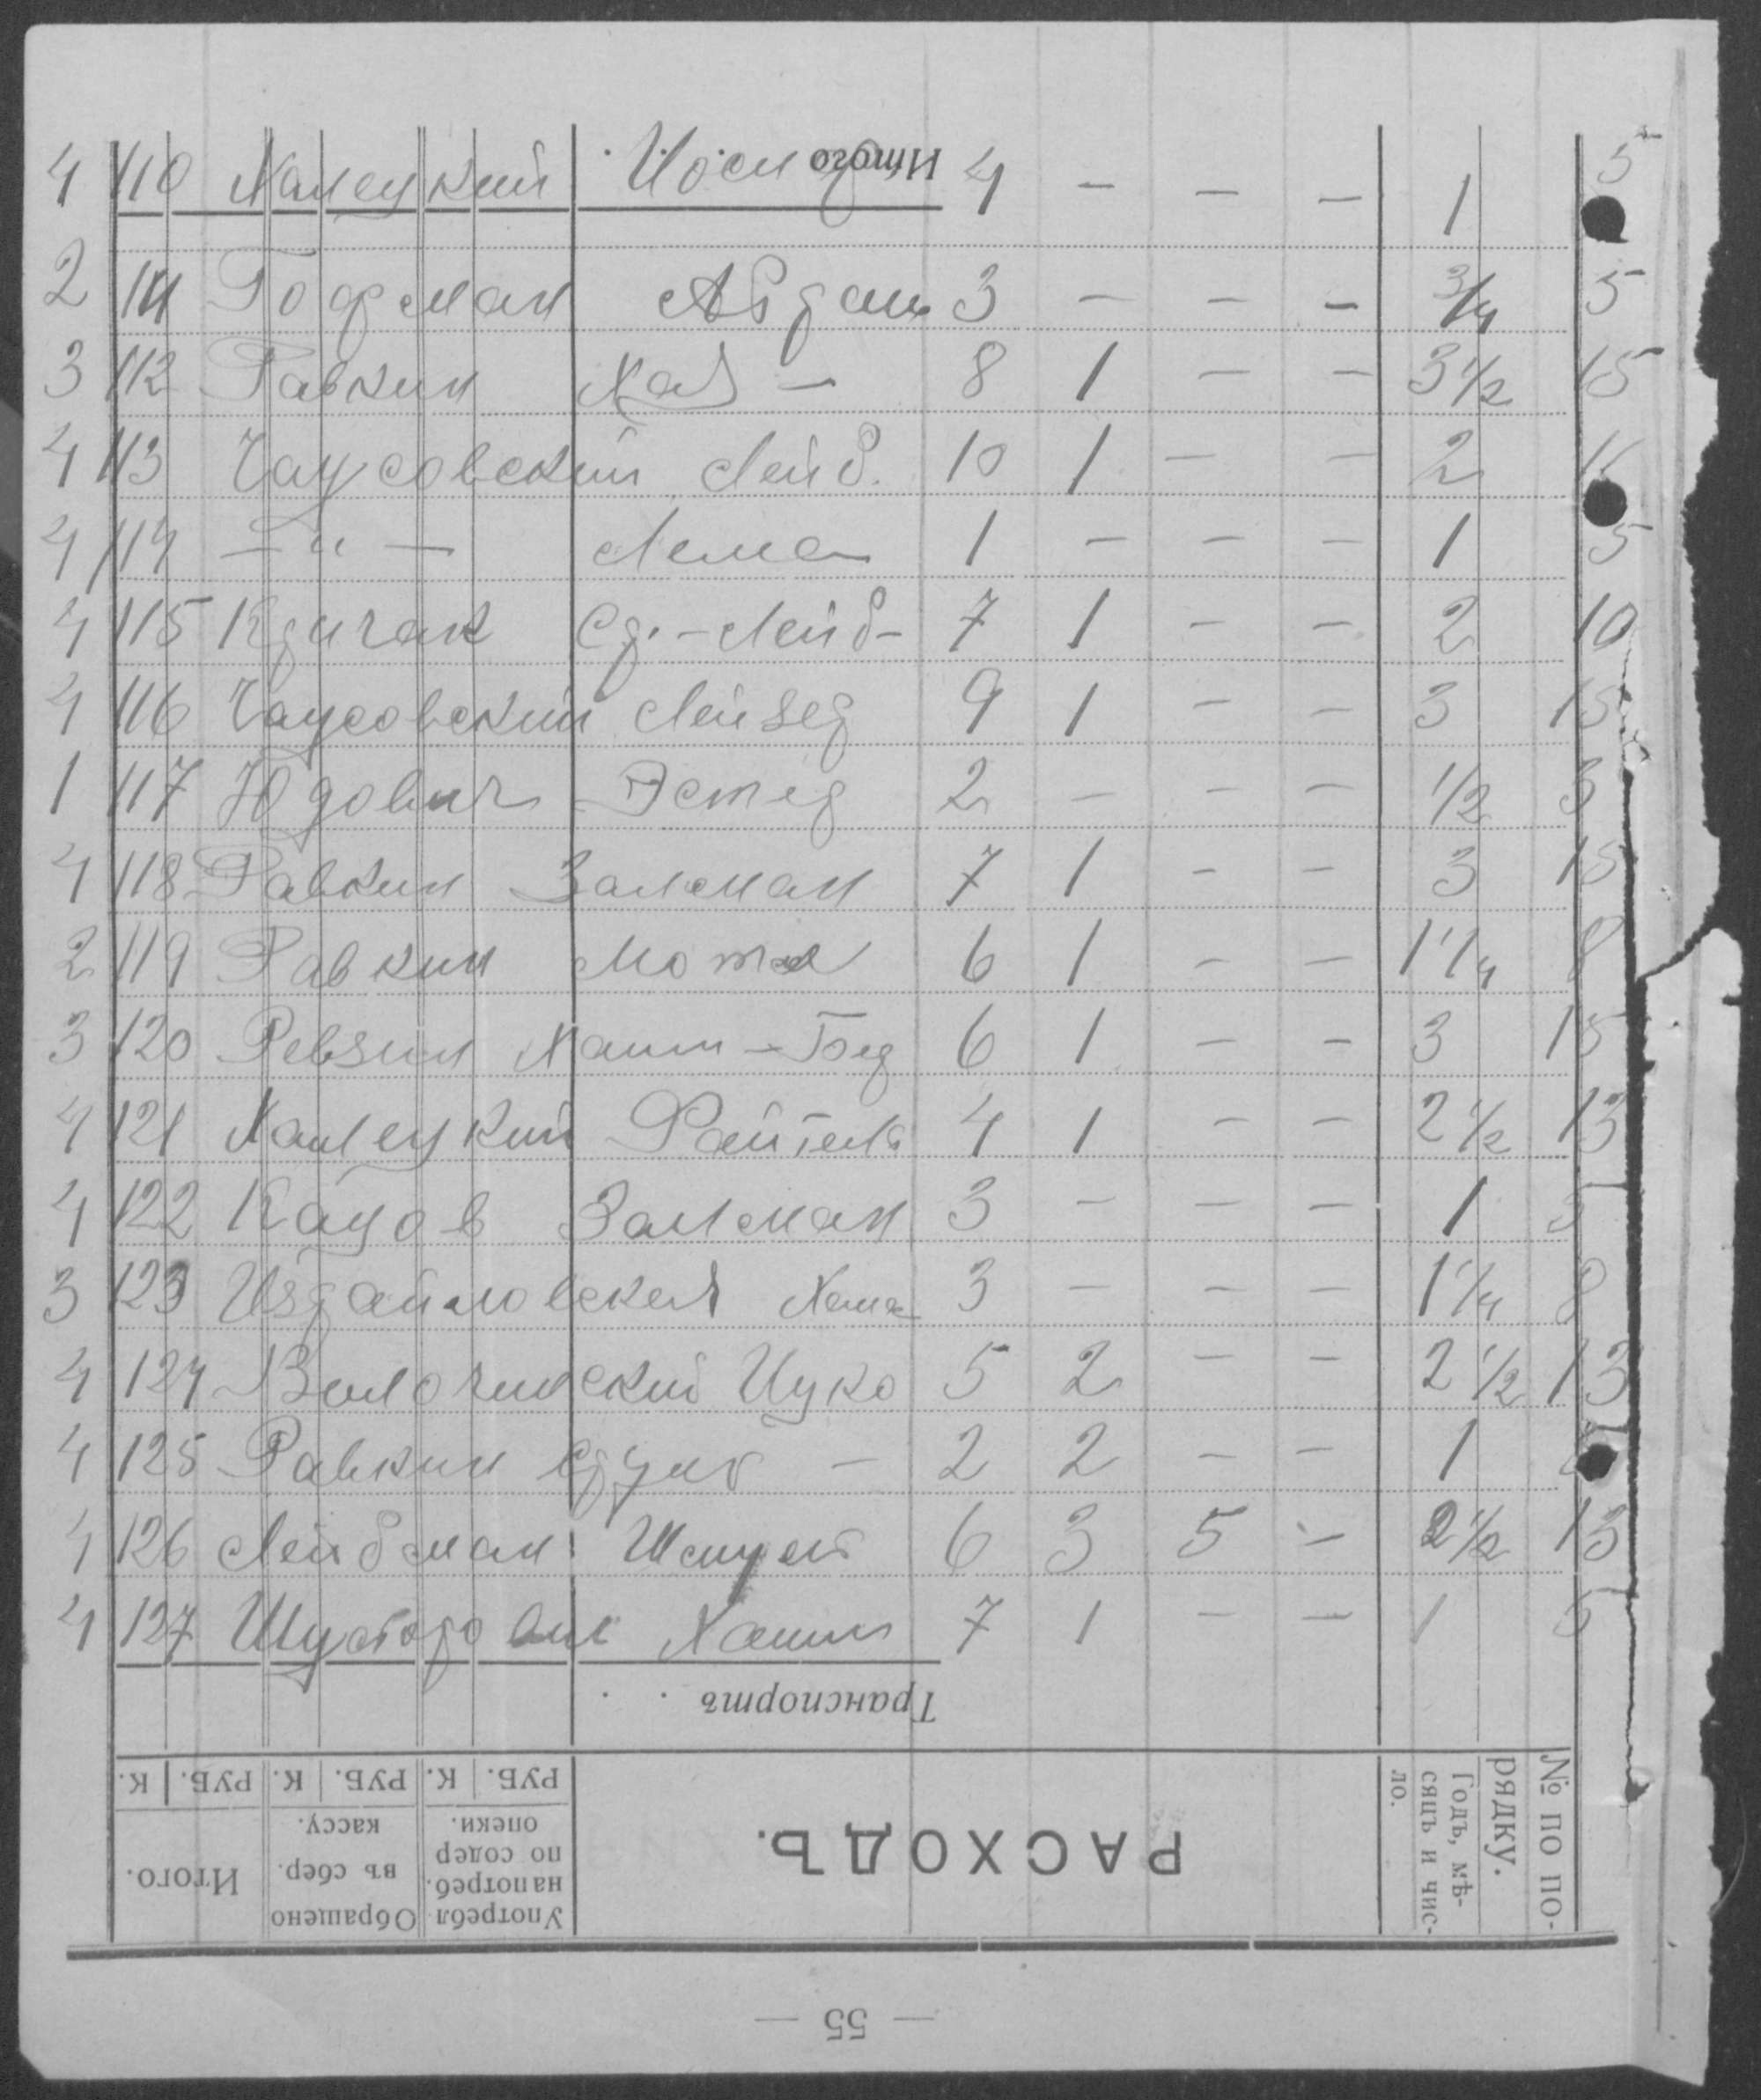 4 110 Халецкий Иосиф 4 — — — 1 5
Итого . . .
2 111 Гофман Абрам 3 — — — 3/4 5
3 112 Равкин Хая — 8 1 — — 3 1/2 15
4 113 Чаусовский Лейб. 10 1 — — 2
4 114 — " — Лема 1 — — — 1 5
4 115 Ср.-Лейб- 7 1 — — 2 10
4 116 Чаусовский Лейзер 9 1 — — 3 15
1 117 Юдович Эстер 2 — — — 1/2 3
4 118 Равкин Залман 7 1 — — 3 15
2 119 Равкин Мотя 6 1 — — 1 1/4 8
3 120 Ревзин Хаим-Бер 6 1 — — 3 15
4 121 Халецкий 4 1 — — 2 1/2 13
4 122 Кацов Залман 3 — — — 1 5
3 123 3 — — — 1 1/4 8
4 124 Ицко 5 2 — — 2 1/2 13
4 125 Равкин — 2 2 — — 1
4 126 Лейбман Шмуель 6 3 5 — 2 1/2 13
4 127 Хаим 7 1 — — 1 5
Транспортъ . .
№ по по-
рядку.
Годъ, мѣ-
сяцъ и чис-
ло.
РАСХОДЪ.
Употребл.
на потреб.
по содер
опеки.
РУБ. К.
Обращено
въ сбер.
кассу.
РУБ. К.
Итого.
РУБ. К.
— 55 —